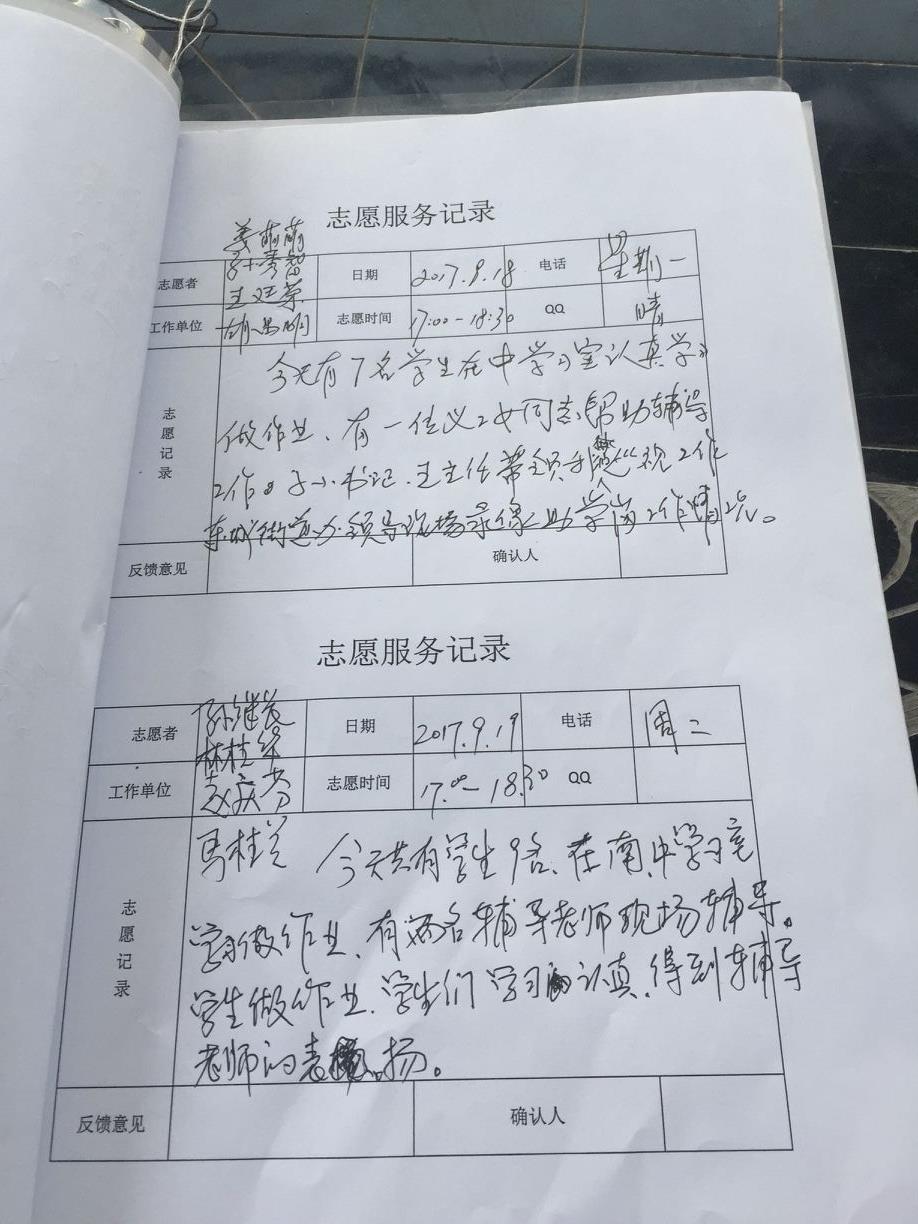 志愿服务记录
姜萌萌
志愿者 日期 2017.9.18 电话 星期一
王廷荣
工作单位 胡昌明 志愿时间 17:00-18:30 QQ 晴
今天有7名学生在中学习室认真学习
志愿记录
做作业、有一位义工女同志帮助辅导
工作。 小书记、王主任带领 巡视工作
东城街道办领导现场录像、助学岗工作情况。
反馈意见 确认人
志愿服务记录
孙继良
志愿者 日期 2017.9.19 电话 周二
林桂华
工作单位 赵庆芳 志愿时间 17.00-18.30 QQ
马桂兰 今天共有学生9名、在南中学习室
志愿记录
学习做作业、有两名辅导老师现场辅导。
学生做作业、学生们学习认真、得到辅导
老师的表扬。
反馈意见 确认人